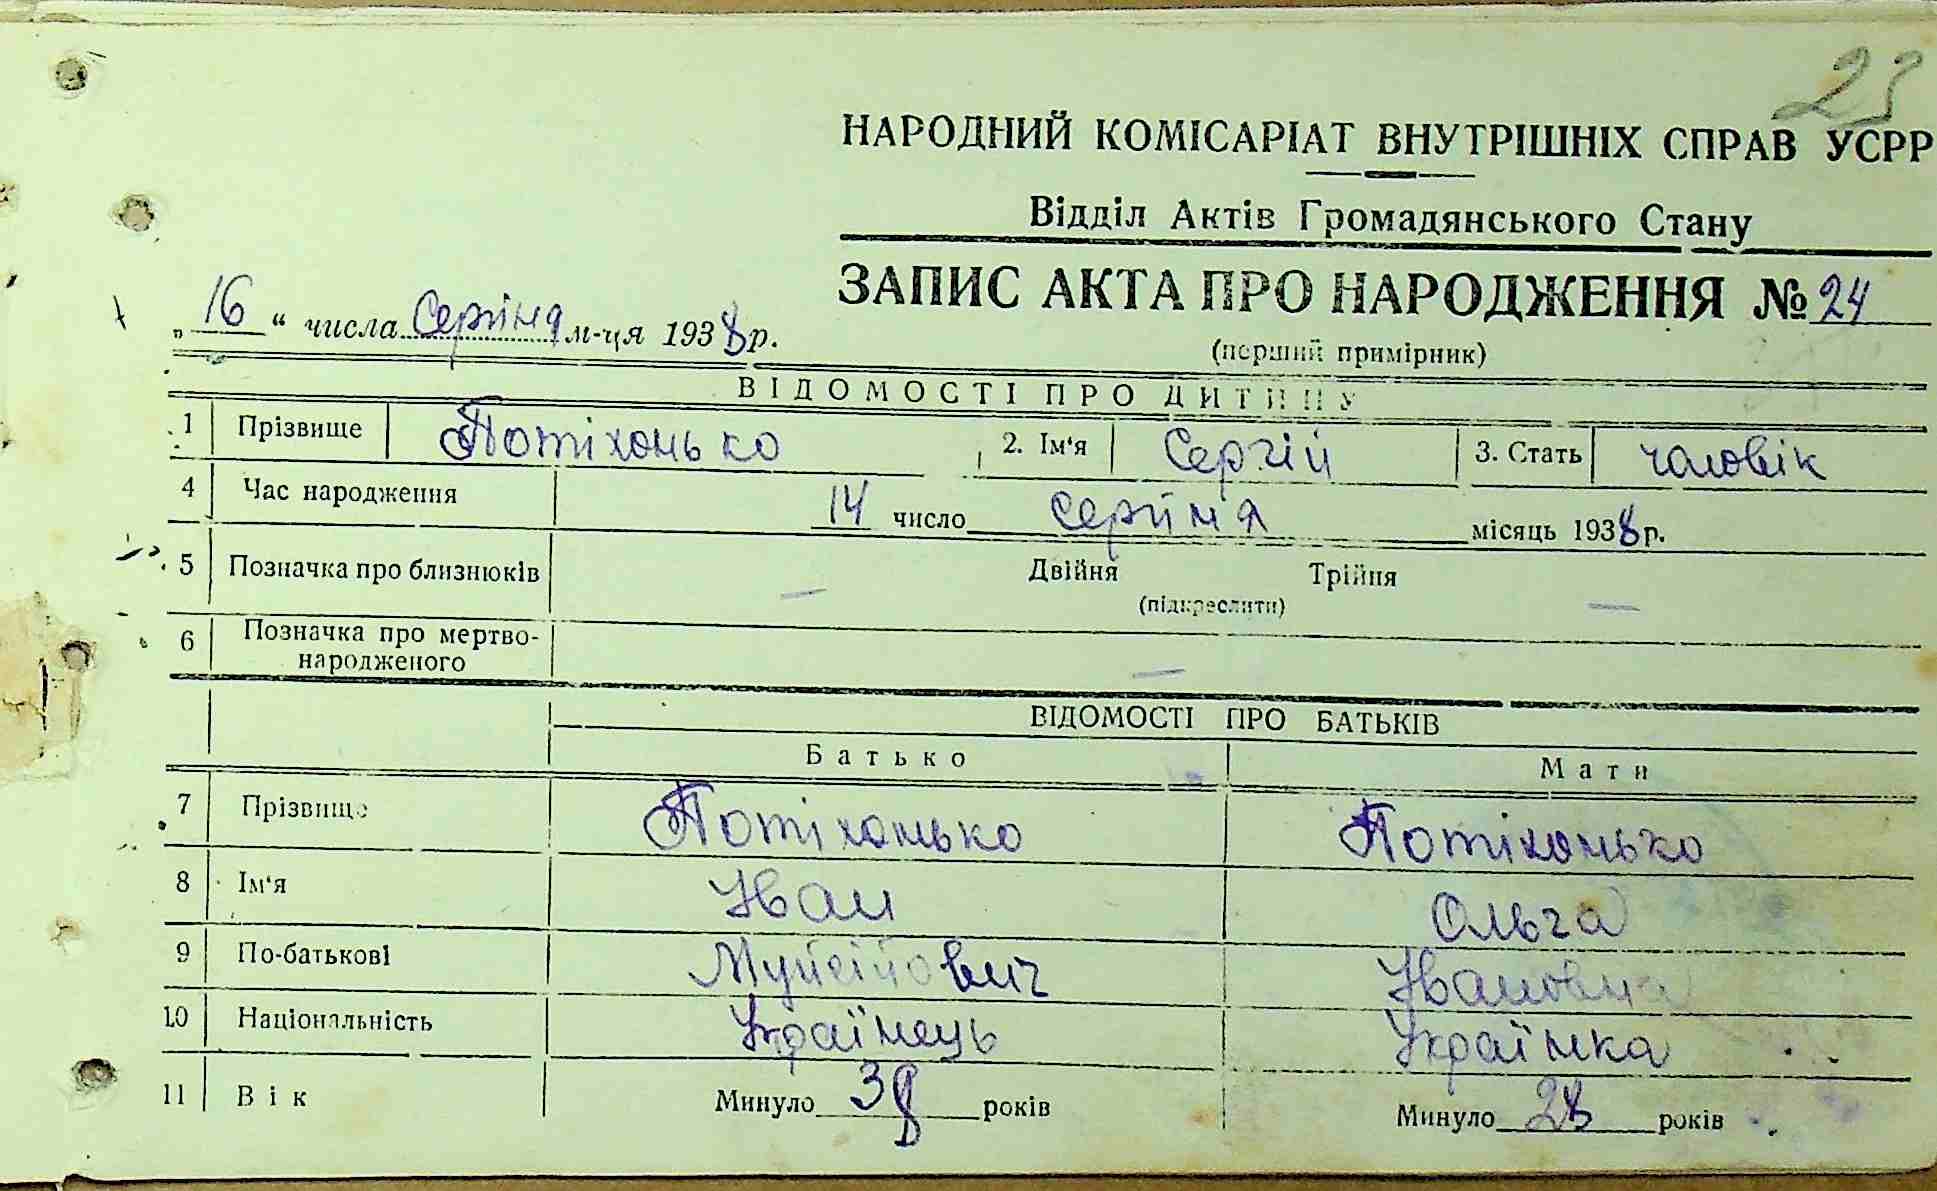 23
НАРОДНИЙ КОМІСАРІАТ ВНУТРІШНІХ СПРАВ УСРР
Відділ Актів Громадянського Стану
ЗАПИС АКТА ПРО НАРОДЖЕННЯ № 24
„16“ числа Серпіня м-ця 1938 р.
(перший примірник)
ВІДОМОСТІ ПРО ДИТИНУ
1 Прізвище Потіхонько 2. Ім'я Сергій 3. Стать чоловік
4 Час народження 14 число серпіня місяць 1938 р.
5 Позначка про близнюків — Двійня Трійня —
(підкреслити)
6 Позначка про мертво-
народженого —
ВІДОМОСТІ ПРО БАТЬКІВ
Батько Мати
7 Прізвище Потіхонько Потіхонько
8 Ім'я Іван Ольга
9 По-батькові Івановна
10 Національність Українець Українка
11 Вік Минуло 38 років Минуло 28 років